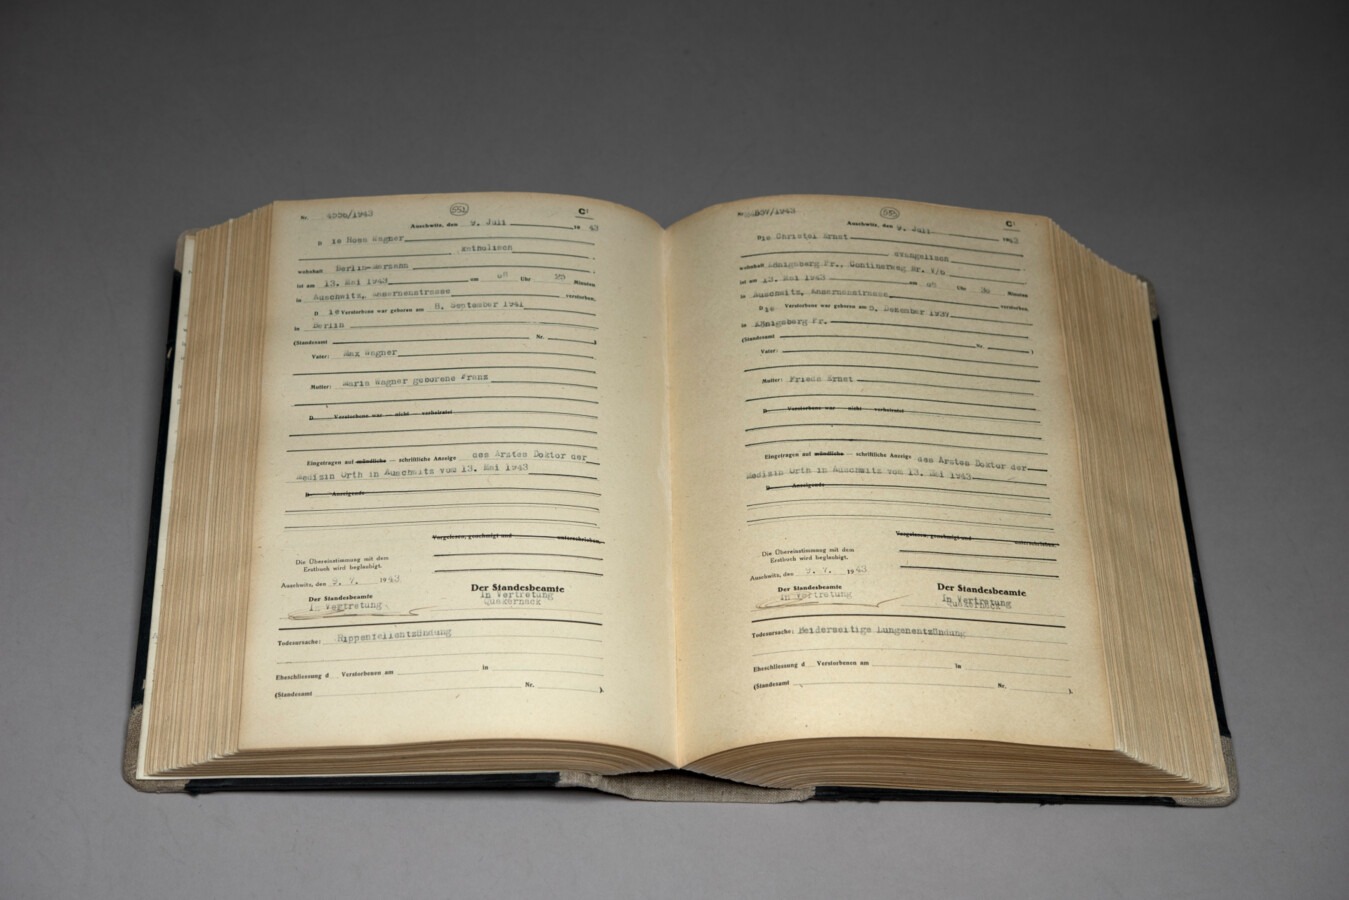 Nr. /1943
C¹
Auschwitz, den 9. Juli 1943
D ie Rosa Wagner
katholisch
wohnhaft Berlin-
ist am 13. Mai 1943 um Uhr Minuten
in Auschwitz, Kasernenstrasse verstorben.
D ie Verstorbene war geboren am 8. September 1941
in Berlin
(Standesamt Nr. )
Vater: Max Wagner
Mutter: Maria Wagner geborene Franz
D Verstorbene war — nicht — verheiratet
Eingetragen auf mündliche — schriftliche Anzeige des Arztes Doktor der
Medizin Orth in Auschwitz vom 13. Mai 1943
D Anzeigende
Vorgelesen, genehmigt und unterschrieben.
Die Übereinstimmung mit dem
Erstbuch wird beglaubigt.
Auschwitz, den 9. 7. 1943
Der Standesbeamte
In Vertretung
Der Standesbeamte
In Vertretung
Quakernack
Todesursache: Rippenfellentzündung
Eheschliessung d Verstorbenen am in
(Standesamt Nr. ).
Nr. /1943
C¹
Auschwitz, den 9. Juli 1943
Die Christel Ernst
evangelisch
wohnhaft Königsberg Pr., Contienerweg Nr.
ist am 13. Mai 1943 um Uhr Minuten
in Auschwitz, Kasernenstrasse verstorben.
D ie Verstorbene war geboren am 5. Dezember 1937
in Königsberg Pr.
(Standesamt Nr. )
Vater:
Mutter: Frieda Ernst
D Verstorbene war — nicht — verheiratet
Eingetragen auf mündliche — schriftliche Anzeige des Arztes Doktor der
Medizin Orth in Auschwitz vom 13. Mai 1943
D Anzeigende
Vorgelesen, genehmigt und unterschrieben.
Die Übereinstimmung mit dem
Erstbuch wird beglaubigt.
Auschwitz, den 9. 7. 1943
Der Standesbeamte
In Vertretung
Der Standesbeamte
In Vertretung
Quakernack
Todesursache: Beiderseitige Lungenentzündung
Eheschliessung d Verstorbenen am in
(Standesamt Nr. ).